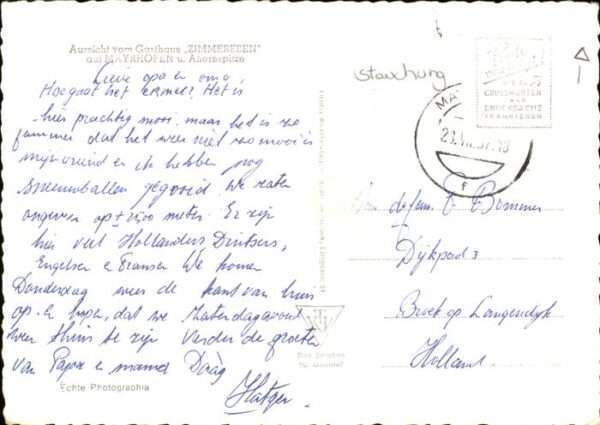 Aussicht vom Gasthaus „ZIMMEREBEN"
auf MAYRHOFEN u. Ahornspitze
Lieve opa en oma
Hoe gaat het ermee? Het is
hier prachtig mooi maar het is zo
jammer dat het weer niet zo mooi is
mijn vriend en ik hebben nog
sneeuwballen gegooid. We zaten
ongeveer op ± 2100 meter. Er zijn
hier veel Hollanders, Duitsers,
Engelsen en Fransen We komen
Donderdag weer de kant van huis
op. En hopen dat we Zaterdagavond
weer thuis te zijn verder de groeten
van Papa en mama Dààg
Echte Photographie
Stauhung
MA
F
Aan de fam. Bommer
Dijkpad 3
Broek op Langendijk
Holland